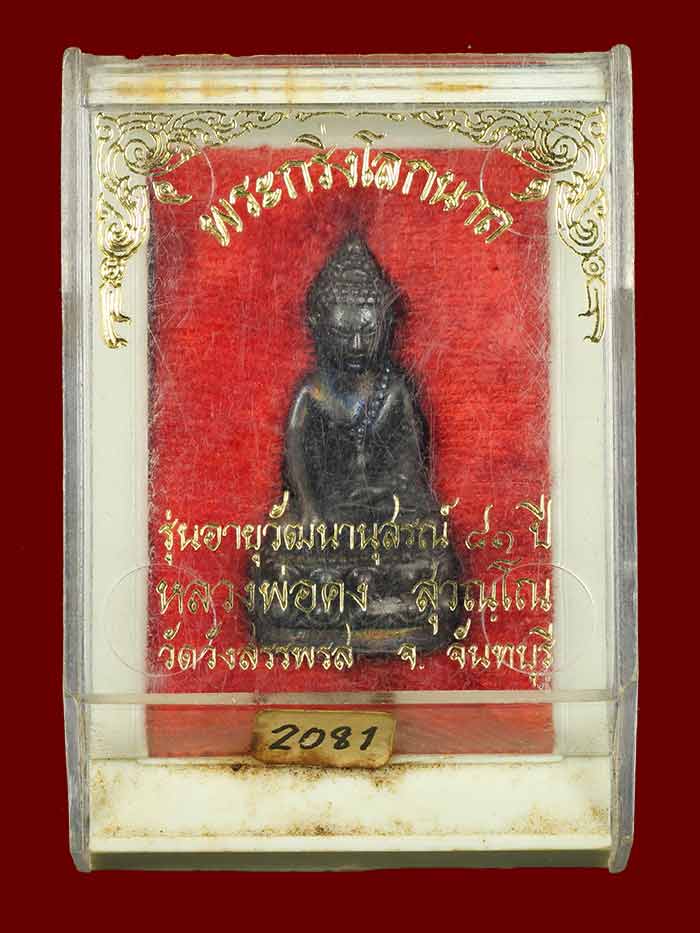 พระกริ่งโลกนาถ
รุ่นอายุวัฒนานุสรณ์ ๘๑ ปี
หลวงพ่อคง สุวณฺโณ
วัดวังสรรพรส จ. จันทบุรี
2081